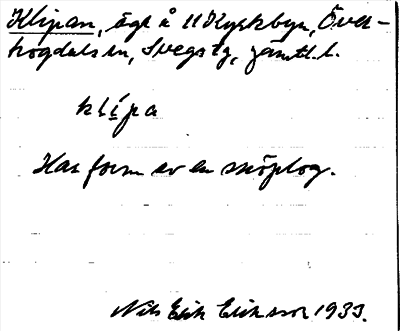 Klipan, ägl å 11 Kyrkbyn, Över-
hogdals sn, Svegs tg, Jämtl. l.
klípa
Har form av en snöplog.
Nils Erik Eriksson 1933.